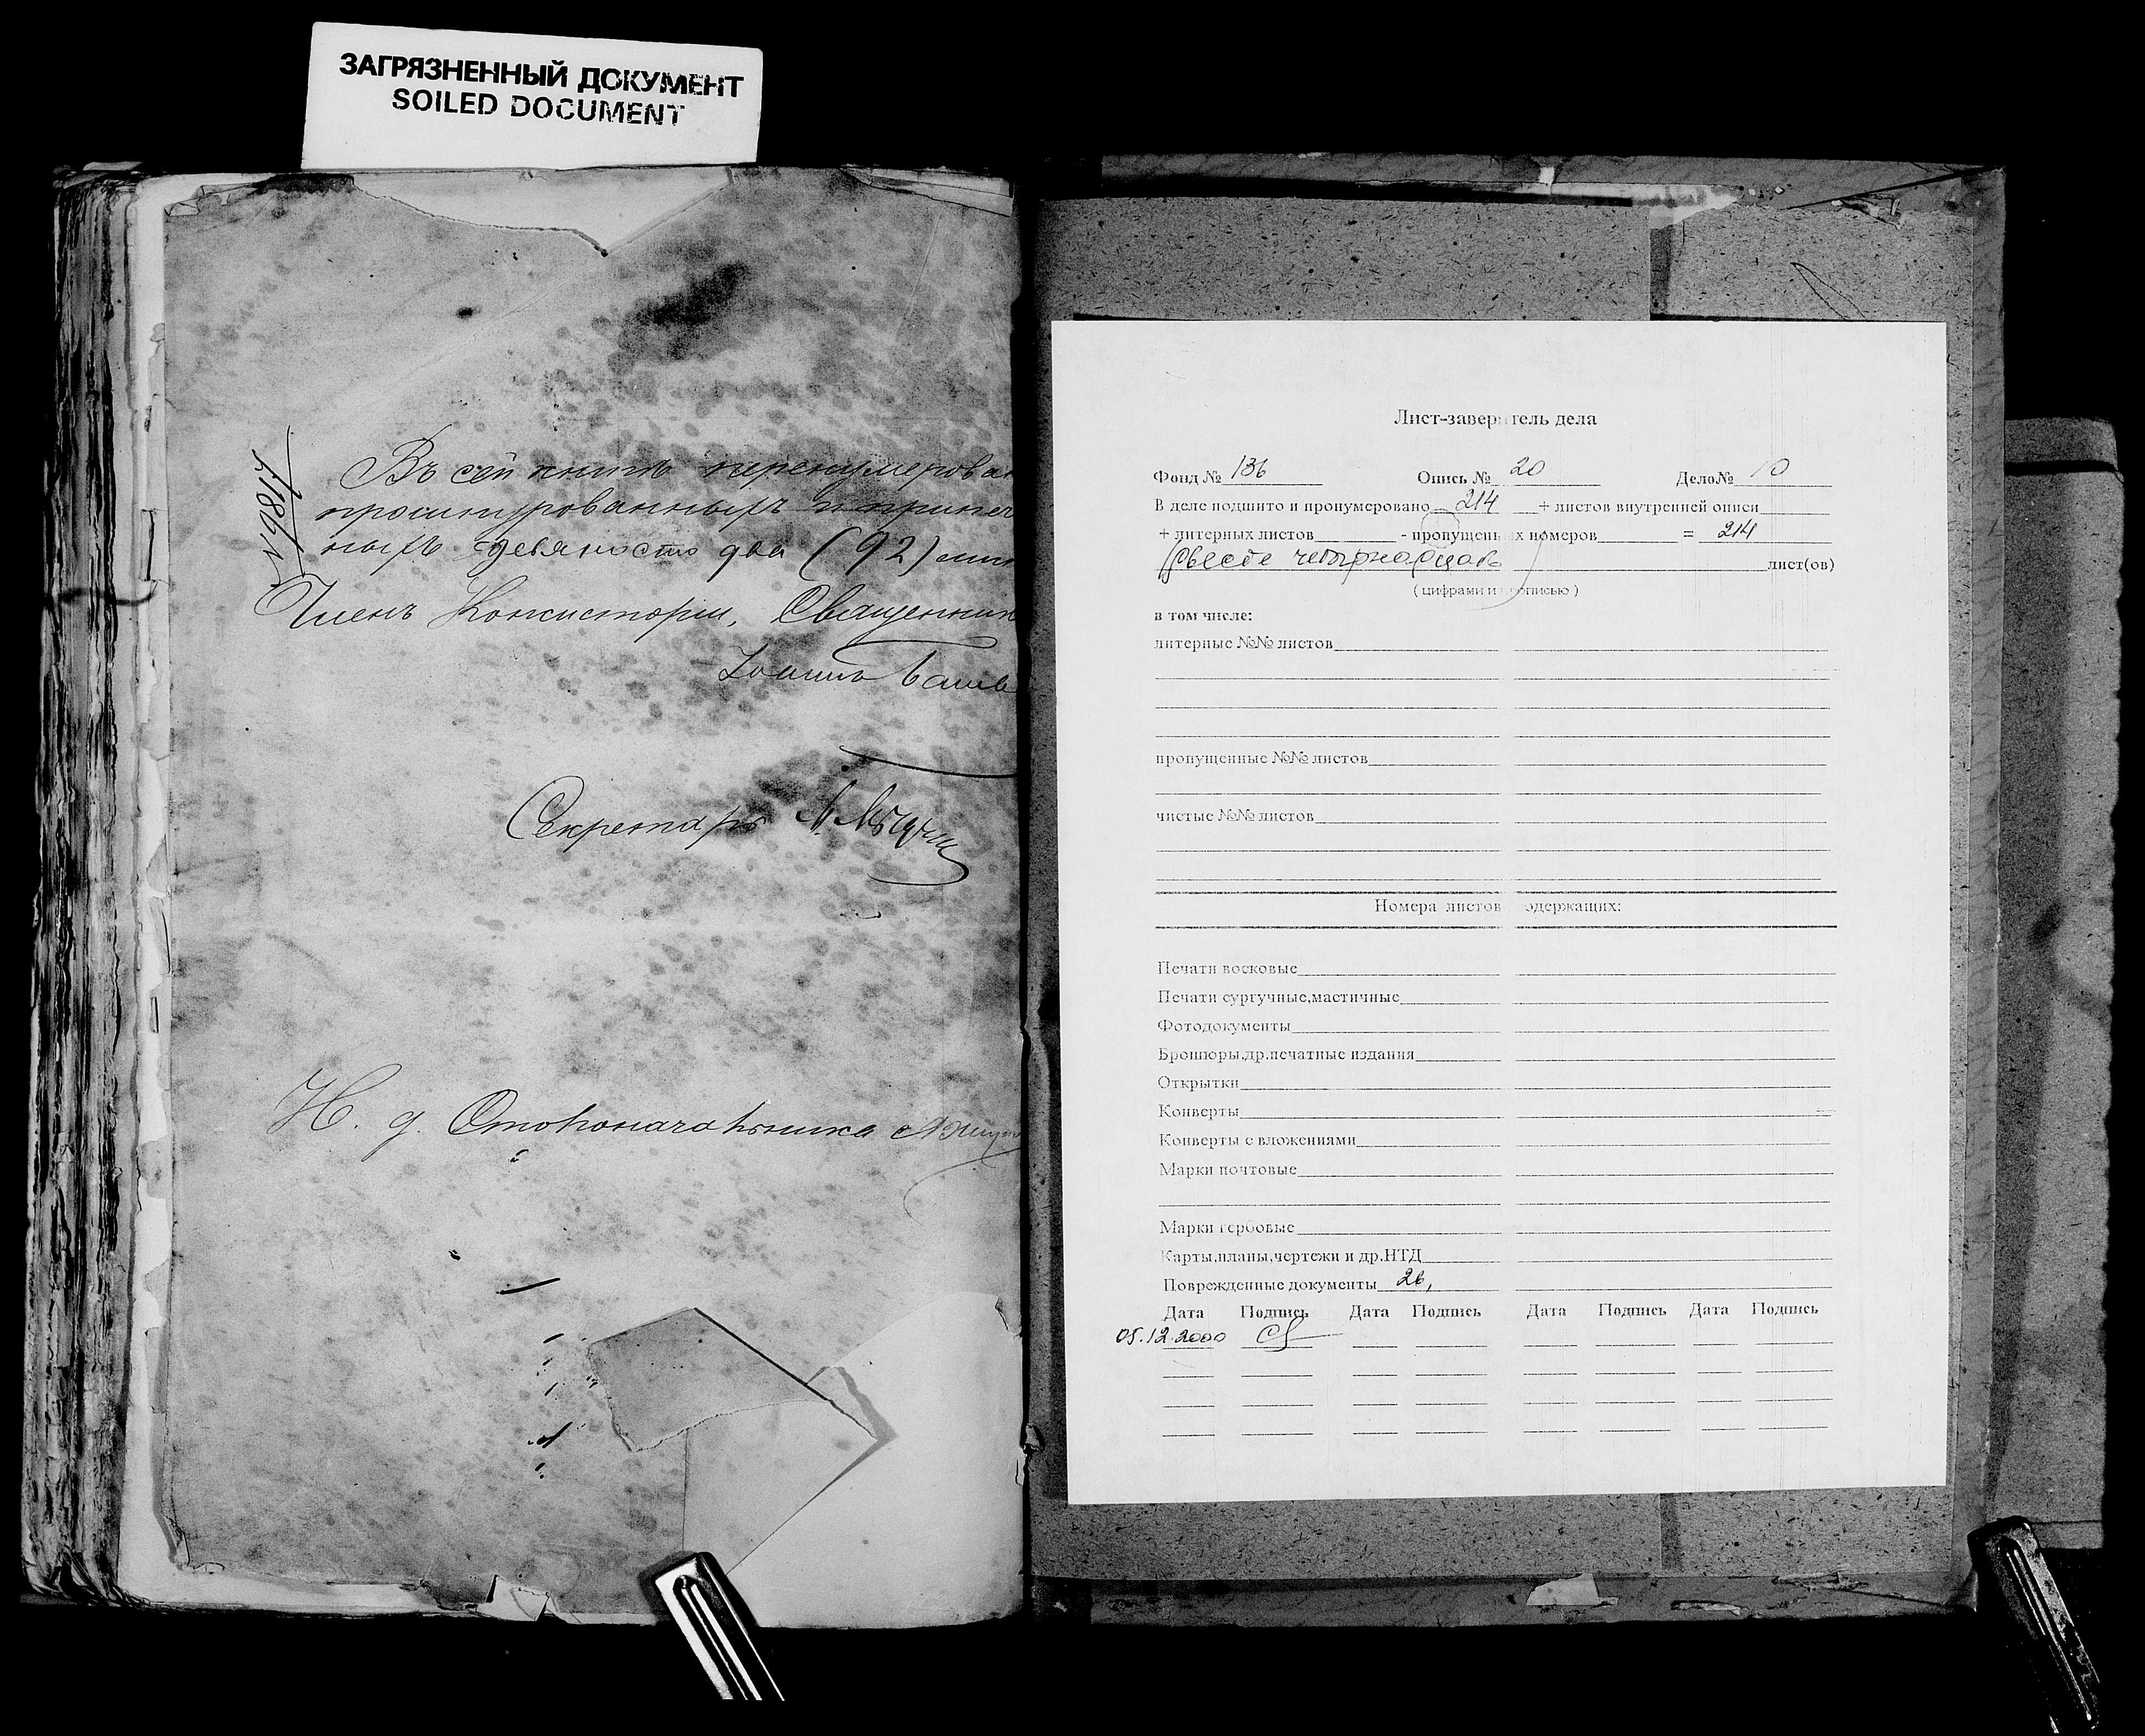 ЗАГРЯЗНЕННЫЙ ДОКУМЕНТ
SOILED DOCUMENT
№ 8817
Въ сей книгѣ перенумерован
прошнурованныхъ и припеч
ныхъ девяносто два (92) лис
Членъ Консисторіи, Священник
Іоаннъ
Секретарь
И. д. Столоначальника
Лист-заверитель дела
Фонд № 136 Опись № 20 Дело№ 10
В деле подшито и пронумеровано 214 + листов внутренней описи
+ литерных листов - пропущенных номеров = 214
Двести четырнадцать лист(ов)
( цифрами и прописью )
в том числе:
литерные №№ листов
пропущенные №№ листов
чистые №№ листов
Номера листов содержащих:
Печати восковые
Печати сургучные,мастичные
Фотодокументы
Брошюры,др.печатные издания
Открытки
Конверты
Конверты с вложениями
Марки почтовые
Марки гербовые
Карты,планы,чертежи и др.НТД
Поврежденные документы 2в,
Дата Подпись Дата Подпись Дата Подпись Дата Подпись
05.12.2000